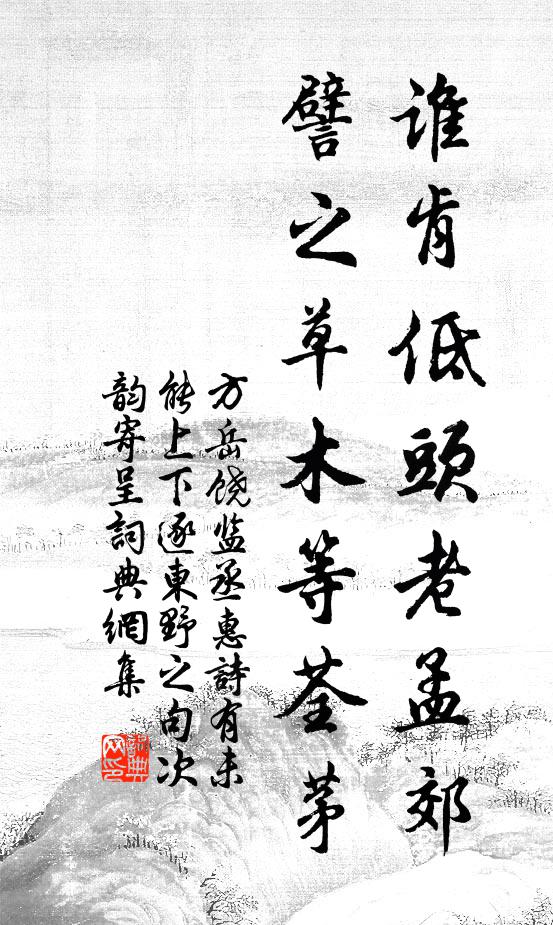 谁肯低頭老孟郊
譬之草木等荃茅
方岳饶监丞惠詩有未
能上下逐東野之句次
韵寄呈詞典網集
詞典网印